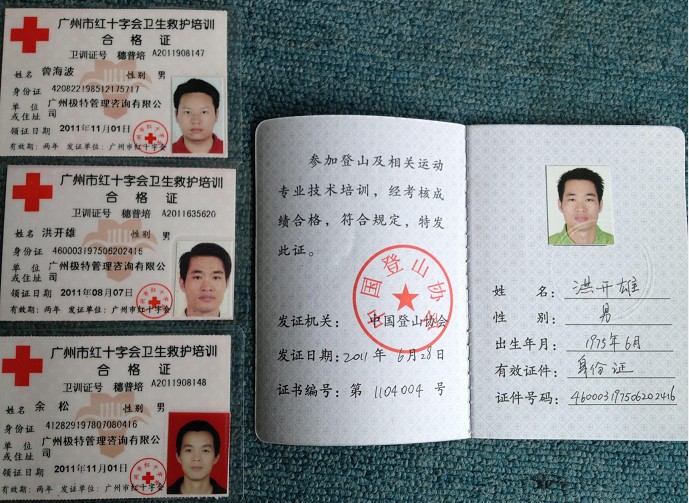 广州市红十字会卫生救护培训
合格证
卫训证号 穗普培 A2011908147
姓名 曾海波 性别 男
身份证 420822198512175717
单位或住址 广州极特管理咨询有限公
司
领证日期 2011年11月01日
有效期：两年 发证单位：广州市红十字会
广州市红十字会卫生救护培训
合格证
卫训证号 穗普培 A2011635620
姓名 洪开雄 性别 男
身份证 460003197506202416
单位或住址 广州极特管理咨询有限公
司
领证日期 2011年08月07日
有效期：两年 发证单位：广州市红十字会
广州市红十字会卫生救护培训
合格证
卫训证号 穗普培 A2011908148
姓名 余松 性别 男
身份证 412829197807080416
单位或住址 广州极特管理咨询有限公
司
领证日期 2011年11月01日
有效期：两年 发证单位：广州市红十字会
参加登山及相关运动
专业技术培训，经考核成
绩合格，符合规定，特发
此证。
中国登山协会
发证机关：中国登山协会
发证日期：2011年6月28日
证书编号：第1104004号
姓名：洪开雄
性别：男
出生年月：1975年6月
有效证件：身份证
证件号码：460003197506202416